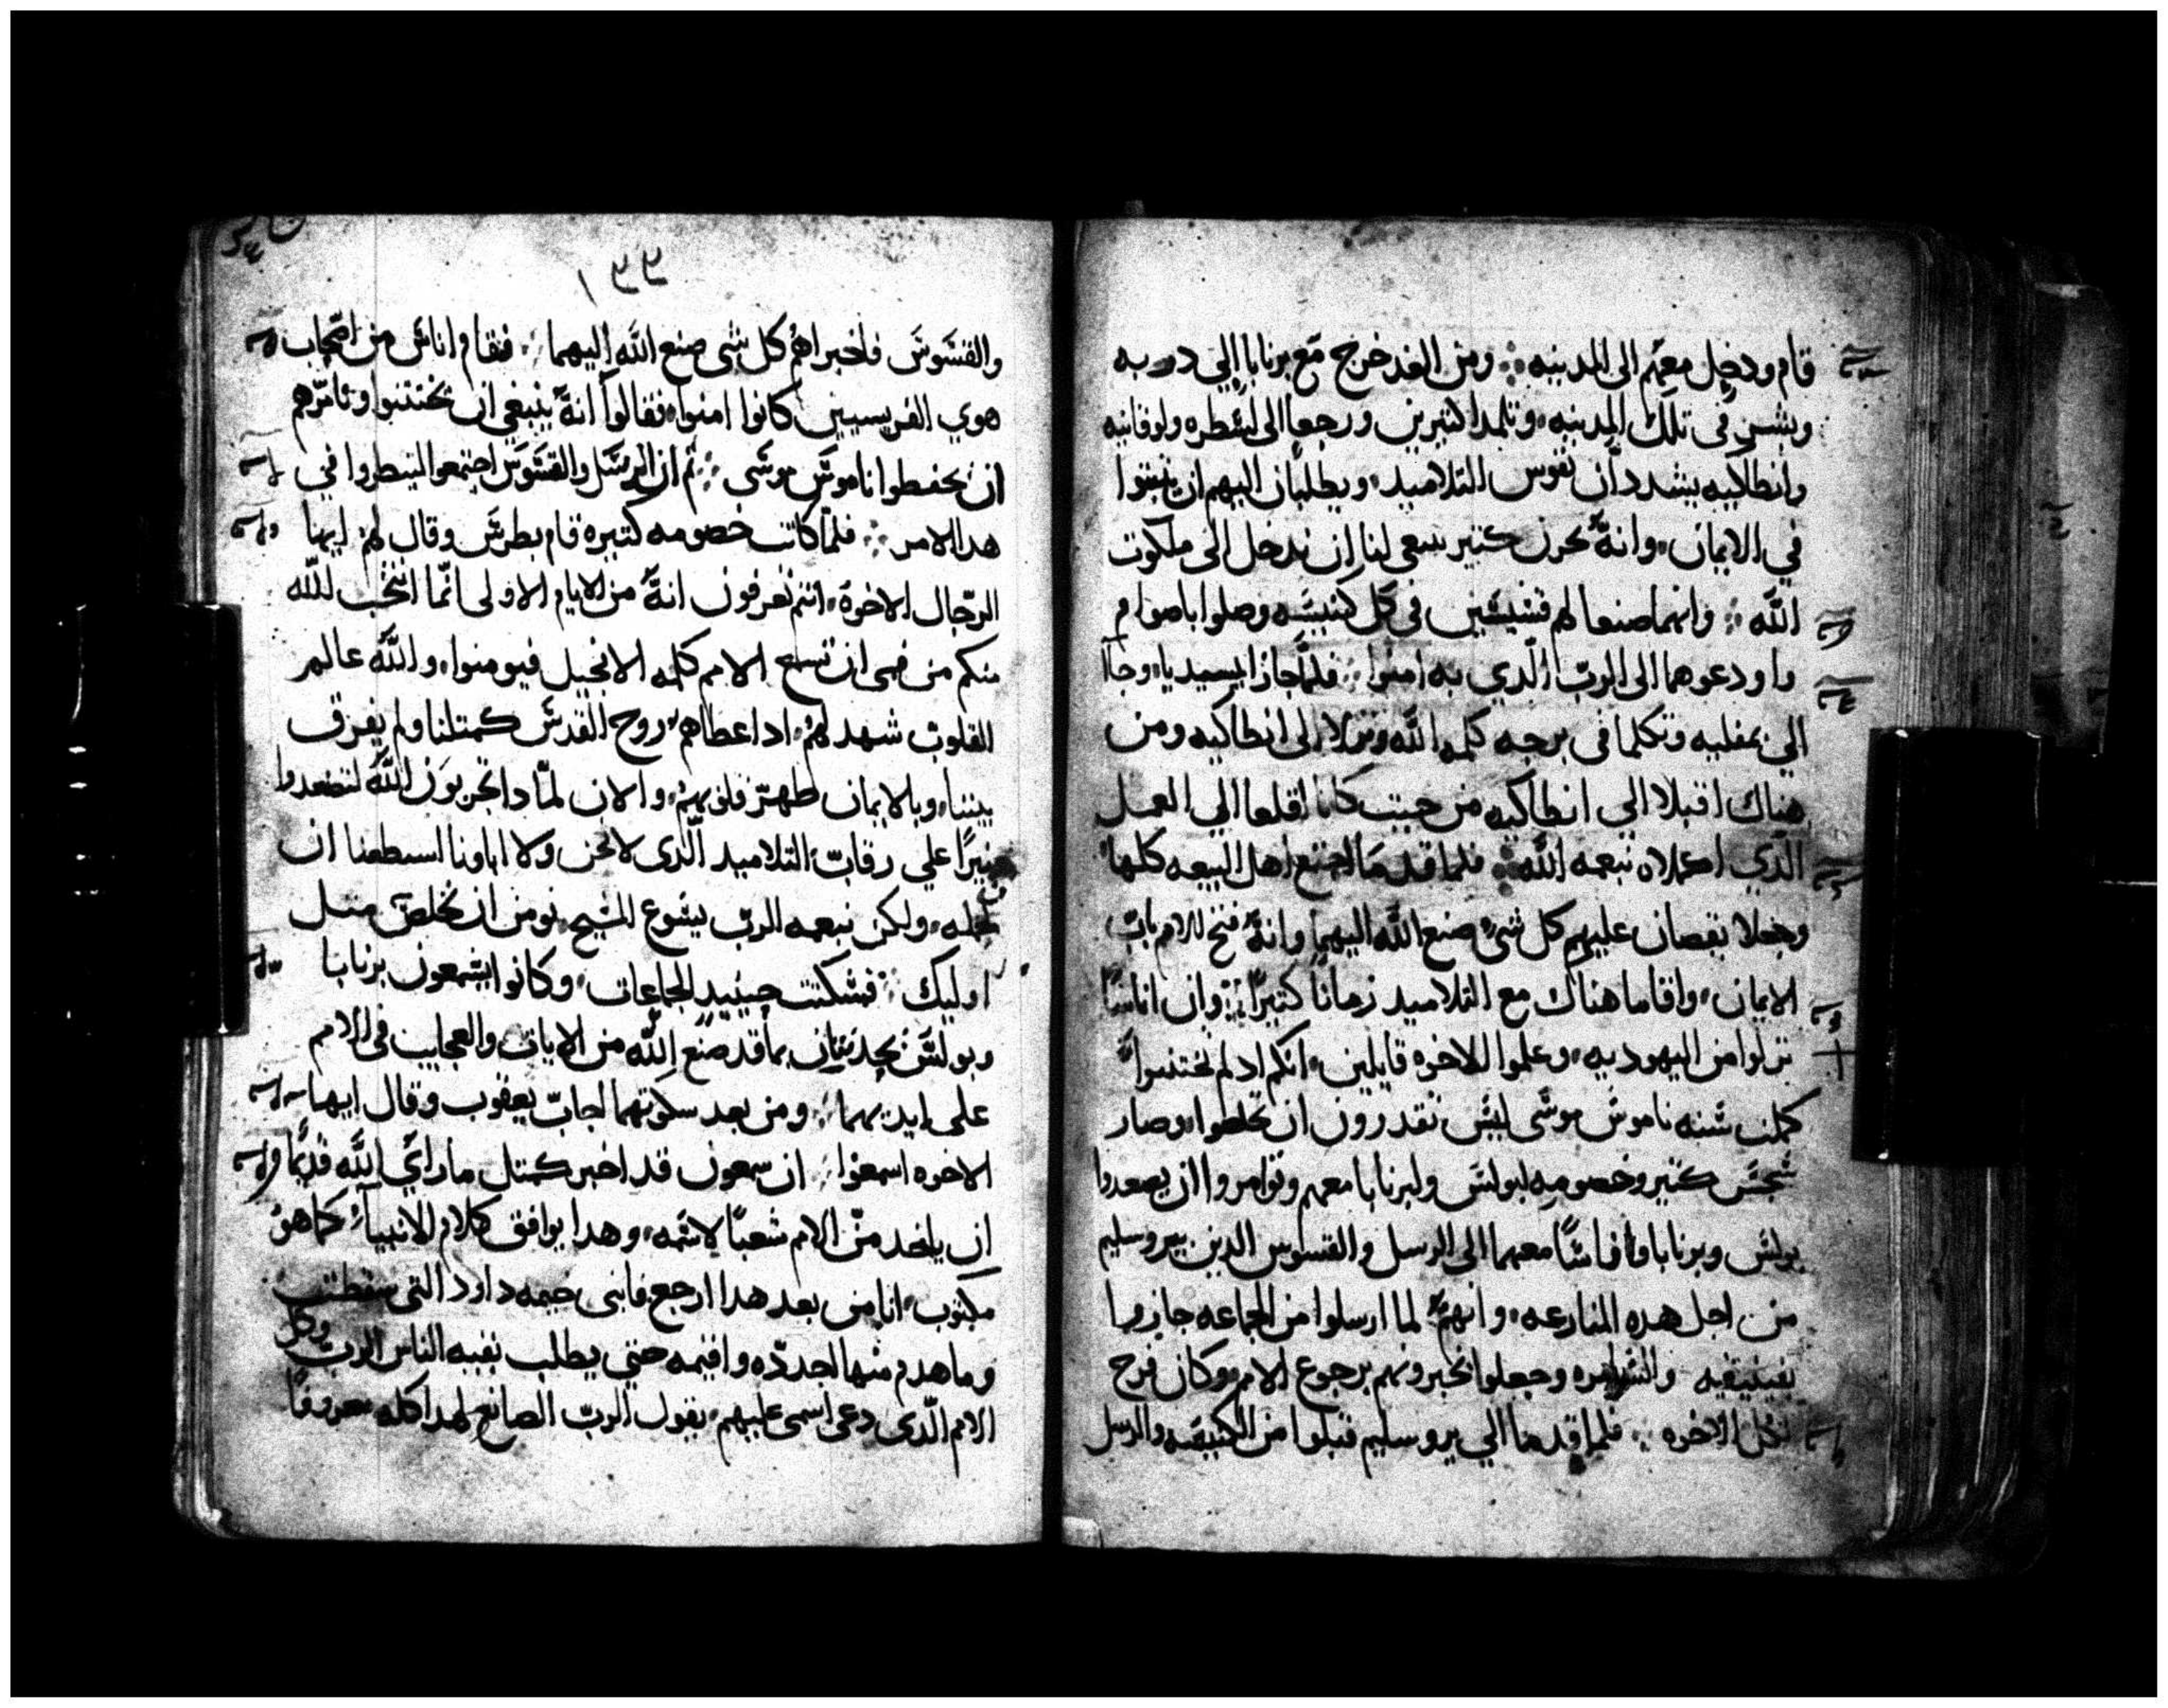 قام ودخل معهم الى المدينه ⁘ ومن الغد خرج مع برنابا الي دربه
وبشر في تلك المدينه، وتلمدا كتيرين ورجعا الى لسطره ولوقانيه
وانطاكيه يشددان نفوس التلاميد، ويطلبان اليهم ان يثبتوا
في الايمان، وانه بحزن كتير ينبغي لنا ان ندخل الى ملكوت
الله ⁘ وانهما صنعا لهم قسيسين في كل كنيسه وصلوا باصوام
واودعوهما الى الرب الدي به امنوا ⁘ فلما جازا بيسيديا، وجاا
الي بمفليه وتكلما في برجه كلمه الله ونزلا الى انطاكيه ومن
هناك اقبلا الي انطاكيه من حيت كانا اقلعا الي العمل
الدي اكملاه بنعمه الله ⁘ فلما قدما اجتمع اهل البيعه كلها
وجعلا يقصان عليهم كل شي صنع الله اليهما وانه فتح للامم باب
الايمان، واقاما هناك مع التلاميد زمانا كتيرا ⁘ وان اناسا
نزلوا من اليهوديه، وعلموا الاخوه قايلين، انكم اد لم تختتنوا
كمتل سنه ناموس موسى ليس تقدرون ان تخلصوا، وصار
سجس كتير وخصومه لبولس ولبرنابا معهم وتوامروا ان يصعدوا
بولس وبرنابا واناسا معهما الى الرسل والقسوس الدين بيروسليم
من اجل هده المنازعه، وانهم لما ارسلوا من الجماعه جازوا
بفينيقيه والسامره وجعلوا يخبرونهم برجوع الامم وكان فرح
لكل الاخوه ⁘ فلما قدما الي يروسليم قبلوا من الكنيسه والرسل
١٣٣
والقسوس فاخبراهم كل شي صنع الله اليهما ⁘ فقام اناس من اصحاب
هوي الفريسيين كانوا امنوا، فقالوا انه ينبغي ان تختتنوا وتامرهم
ان يحفظوا ناموس موسى ⁘ تم ان الرسل والقسوس اجتمعوا لينظروا في
هدا الامر ⁘ فلما كانت خصومه كتيره قام بطرس وقال لهم ايها
الرجال الاخوة، انتم تعرفون انه من الايام الاولى انما انتخب الله
منكم من فمى ان تسمع الامم كلمه الانجيل فيومنوا، والله عالم
القلوب شهد لهم، اد اعطاهم روح القدس كمتلنا ولم يفرق
بيننا، وبالايمان طهر قلوبهم، والان لمادا تجربون الله لتضعدوا
نيرا علي رقاب التلاميد الدى لا نحن ولا اباونا استطعنا ان
نحمله، ولكن بنعمه الرب يسوع المسيح نومن ان نخلص متل
اوليك ⁘ فسكتت حينيد الجماعات، وكانوا يسمعون برنابا
وبولس يحدتان بما قد صنع الله من الايات والعجايب في الامم
على ايديهما ⁘ ومن بعد سكوتهما اجاب يعقوب وقال ايها
الاخوه اسمعوا ⁘ ان سمعون قد اخبر كمتل ما راي الله قديما
ان ياخد من الامم شعبا لاسمه، وهدا يوافق كلام الانبياء كما هو
مكتوب، انا من بعد هدا ارجع فابنى خيمه داود التى سقطت
وما هدم منها اجدده واقيمه حتي يطلب بقيه الناس الرب وكل
الامم الدى دعى اسمى عليهم، يقول الرب الصانع لهدا كله معروفا